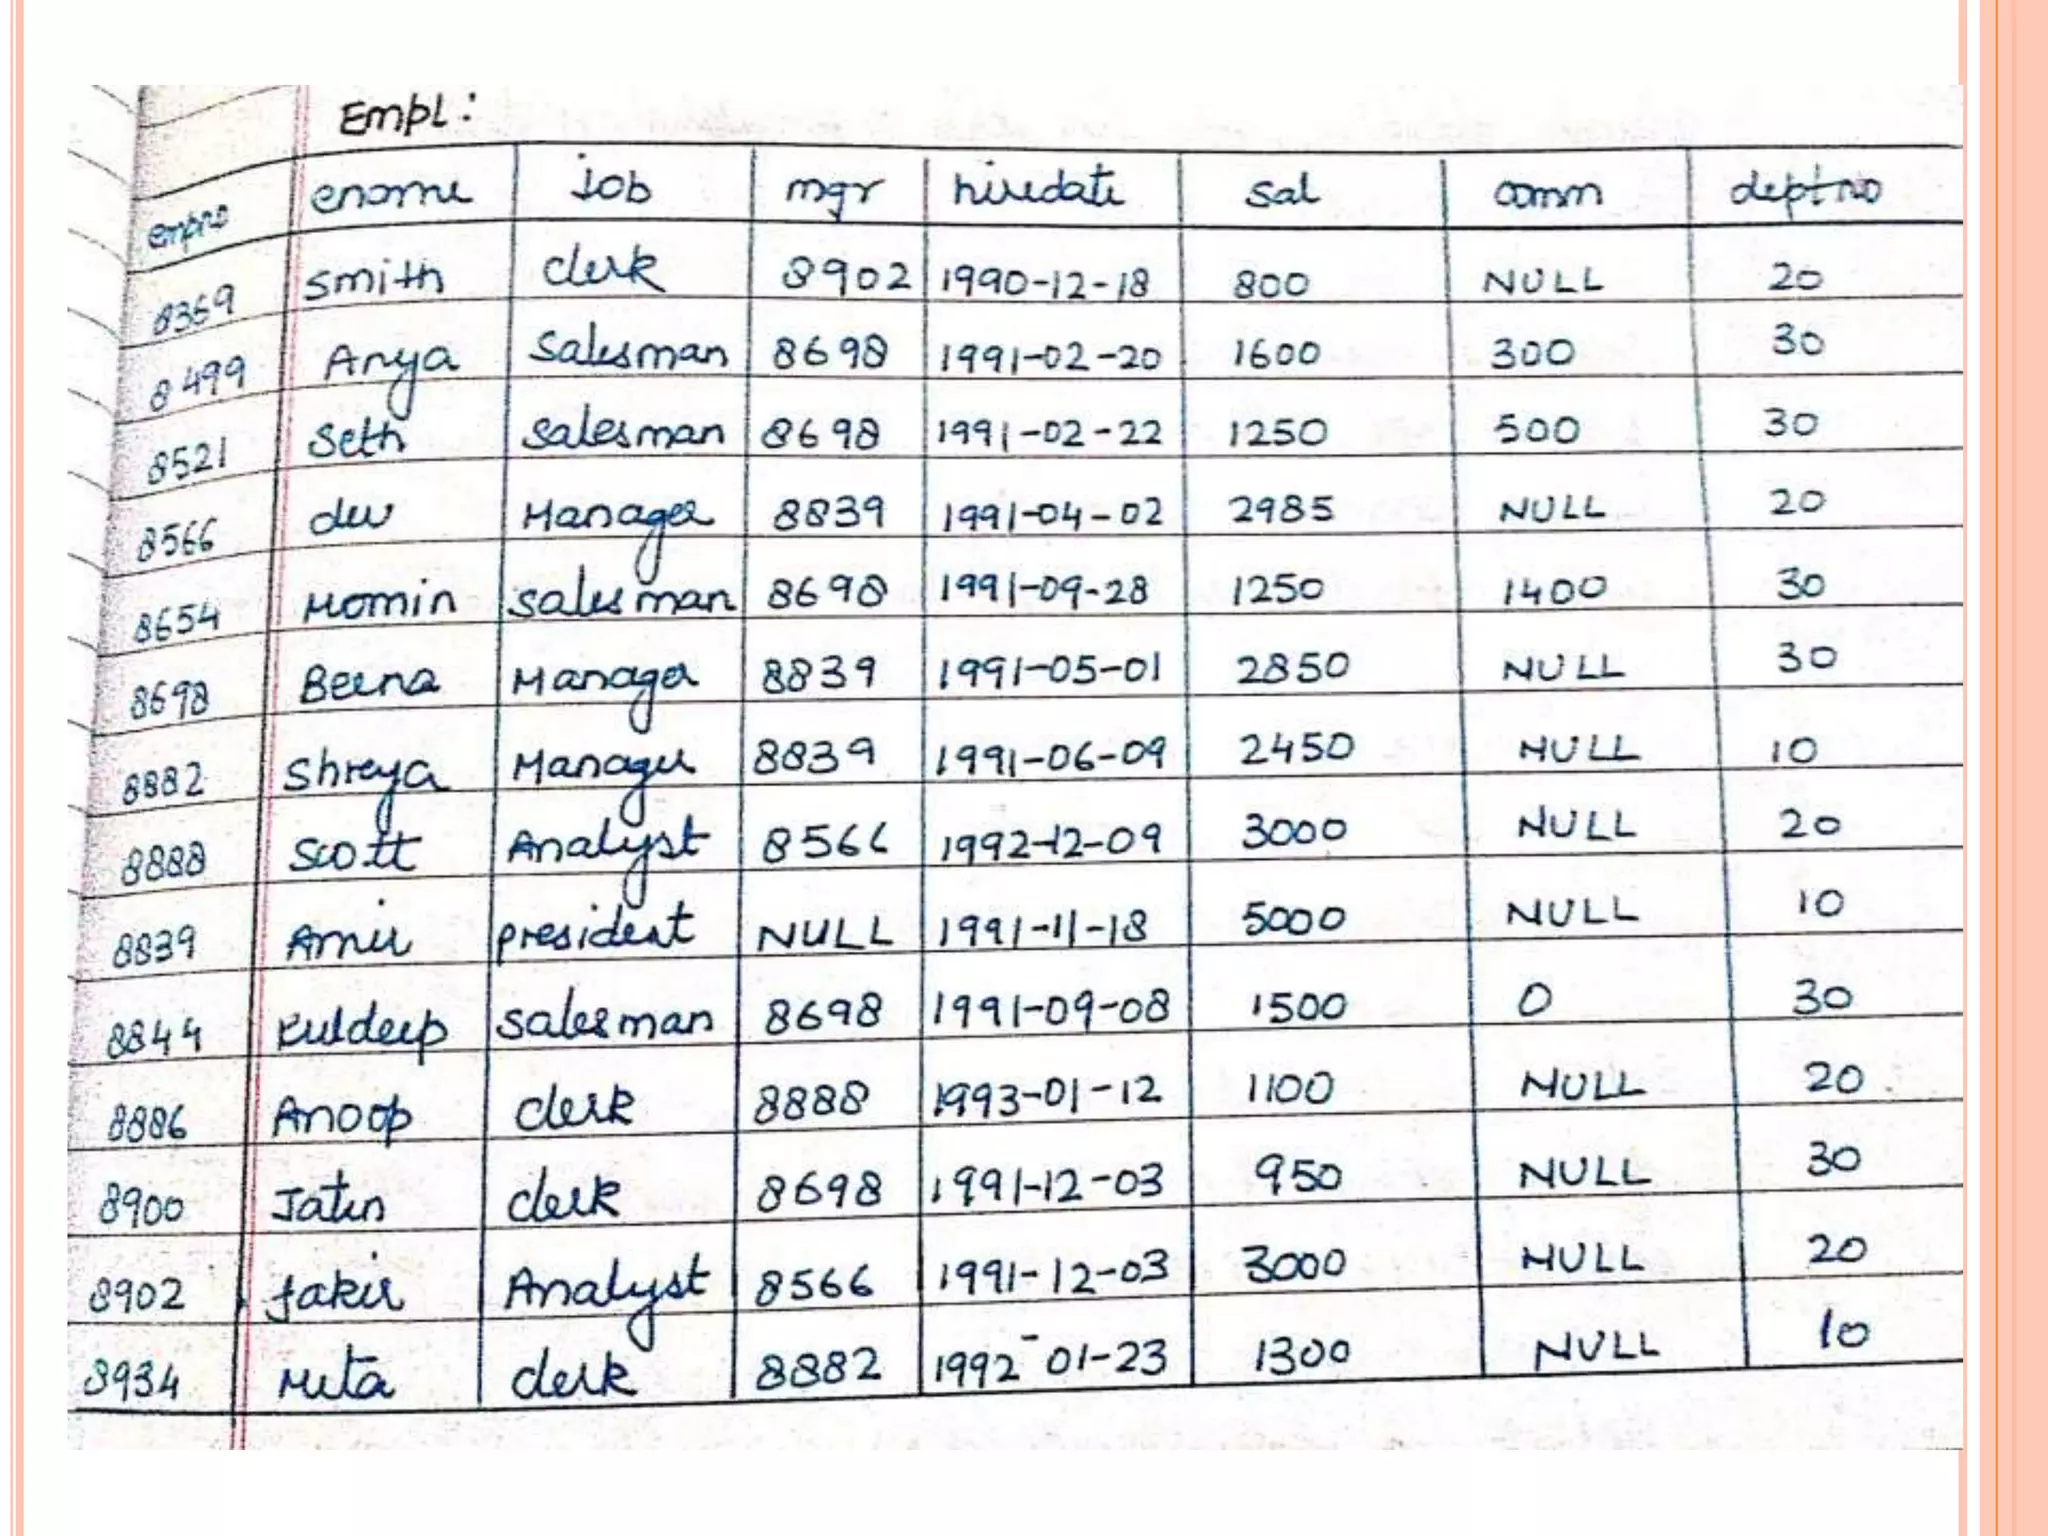 Empl:
empno ename job mgr hiredate sal comm deptno
8369 Smith clerk 8902 1990-12-18 800 NULL 20
8499 Anya Salesman 8698 1991-02-20 1600 300 30
8521 Seth Salesman 8698 1991-02-22 1250 500 30
8566 dev Manager 8839 1991-04-02 2985 NULL 20
8654 Momin Salesman 8698 1991-09-28 1250 1400 30
8698 Beena Manager 8839 1991-05-01 2850 NULL 30
8882 Shreya Manager 8839 1991-06-09 2450 NULL 10
8888 Scott Analyst 8566 1992-12-09 3000 NULL 20
8839 Amir president NULL 1991-11-18 5000 NULL 10
8844 Kuldeep Salesman 8698 1991-09-08 1500 0 30
8886 Anoop clerk 8888 1993-01-12 1100 NULL 20
8900 Jatin clerk 8698 1991-12-03 950 NULL 30
8902 fakir Analyst 8566 1991-12-03 3000 NULL 20
8934 Mita clerk 8882 1992-01-23 1300 NULL 10